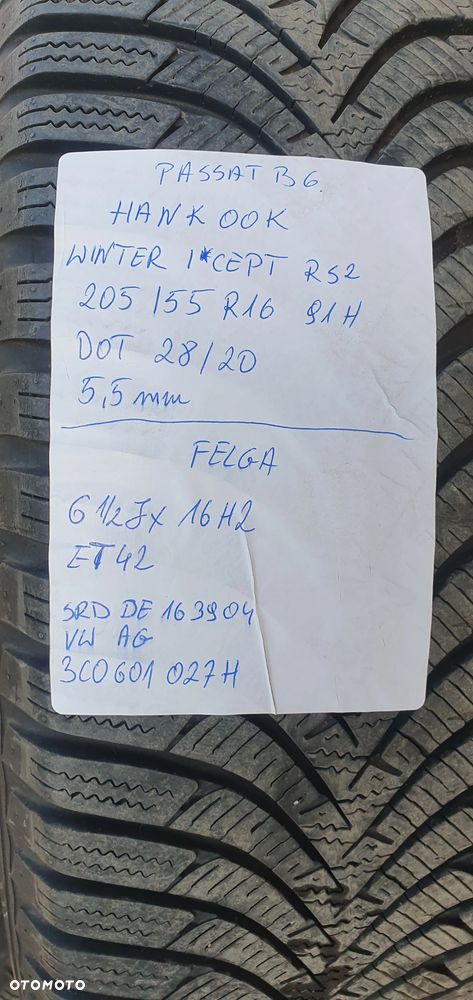 PASSAT B6.
HANKOOK
WINTER I*CEPT RS2
205/55 R16 91H
DOT 28/20
5,5 mm
FELGA
6 1/2 J X 16 H2
ET 42
SRD DE 163904
VW AG
3C0601 027H
OTOMOTO